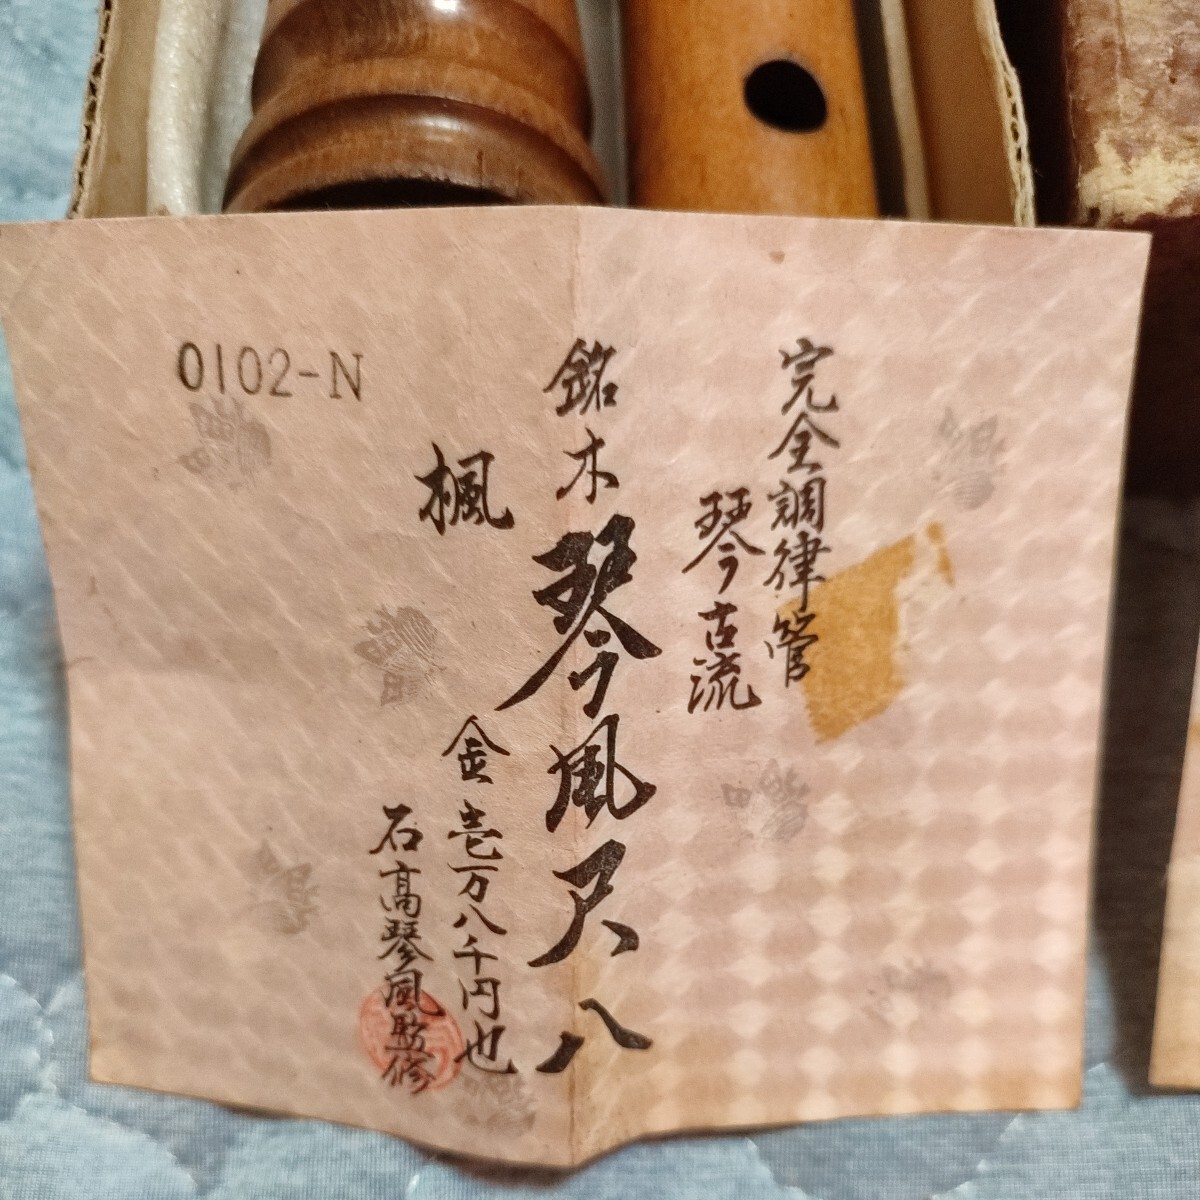 完全調律管
琴古流
銘木
琴風尺八
楓
金壱万八千円也
石高琴風監修
0102-N